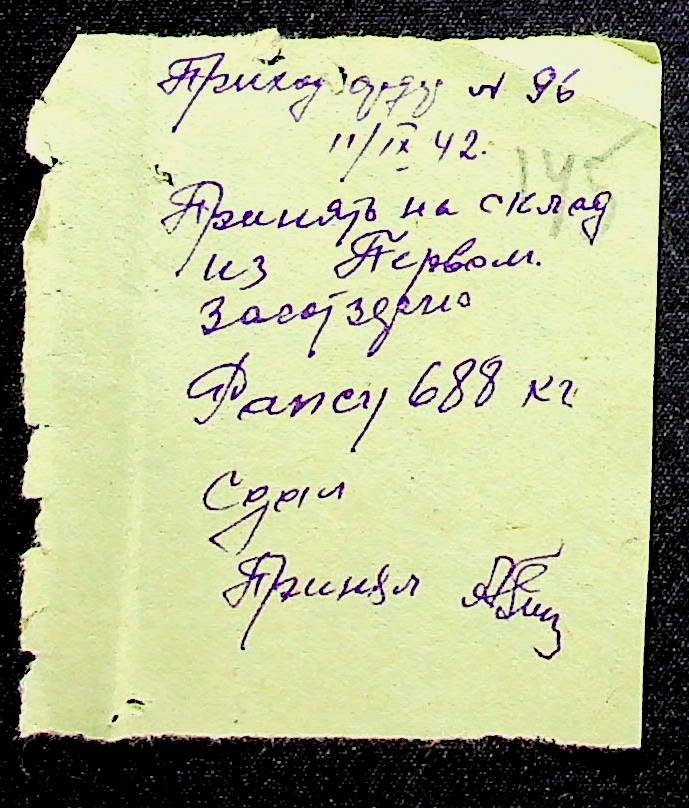 Приход орду № 96
11/IX 42.
145
Принять на склад
из Первом.
Рапсу 688 кг
Сдал
Принял